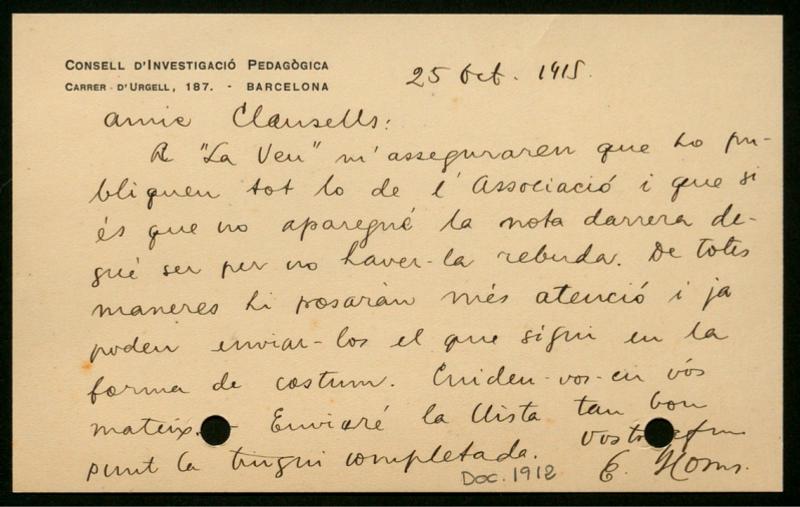 CONSELL D'INVESTIGACIÓ PEDAGÒGICA
CARRER D'URGELL, 187. - BARCELONA
25 Oct. 1915.
Amic Clausells:
A "La Veu" m'asseguraren que ho pu-
bliquen tot lo de l'Associació i que si
és que no aparegué la nota darrera de-
gué ser per no haver-la rebuda. De totes
maneres hi posaràn més atenció i ja
poden enviar-los el que sigui en la
forma de costum. Cuiden-vos-en vós
mateix. - Enviaré la llista tan bon
punt la tingui completada.
Vostre afm
E. Homs.
Doc. 1912